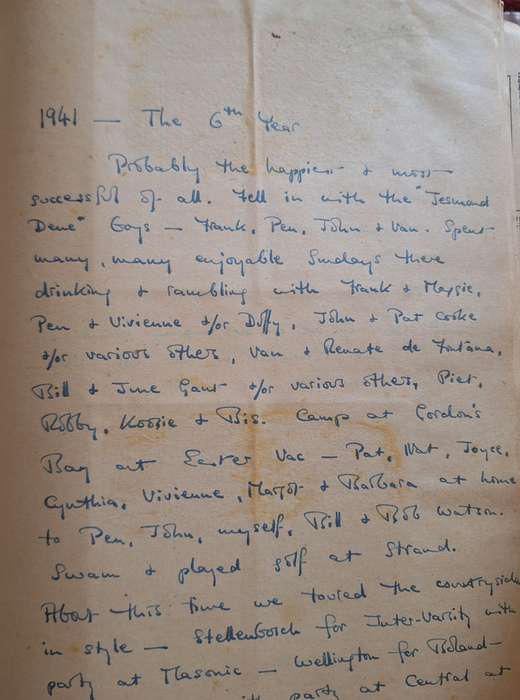 1941 — The 6th Year
Probably the happiest & most
successful of all. Fell in with the "Jesmond
Dene" Boys — Frank, Pen, John & Van. Spent
many, many enjoyable Sundays there
drinking & rambling with Frank & Maggie,
Pen & Vivienne &/or Duffy, John & Pat Cooke
&/or various others, Van & Renate de Fontana,
Bill & June Gant &/or various others, Piet,
Robby, Koosie & Bis. Camp at Gordon's
Bay at Easter Vac — Pat, Nat, Joyce,
Cynthia, Vivienne, Margot & Barbara at home
to Pen, John, myself, Bill & Bob Watson.
Swam & played golf at Strand.
About this time we toured the countryside
in style — Stellenbosch for Inter-Varsity with
party at Masonic — Wellington for Boland —
party at Central at